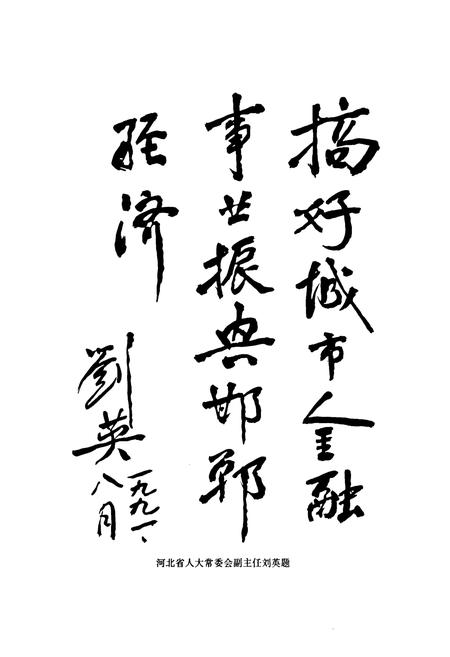 搞好城市金融
事业振兴邯郸
经济
劉英
一九九一、
八月
河北省人大常委会副主任刘英题